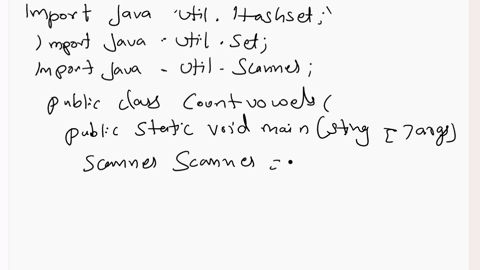 Import Java .util. Hashset;
Import Java . util . Set;
Import Java - util - Scanner;
public class Countvowels {
public static void main (sting [ ] args)
Scanner Scanner =